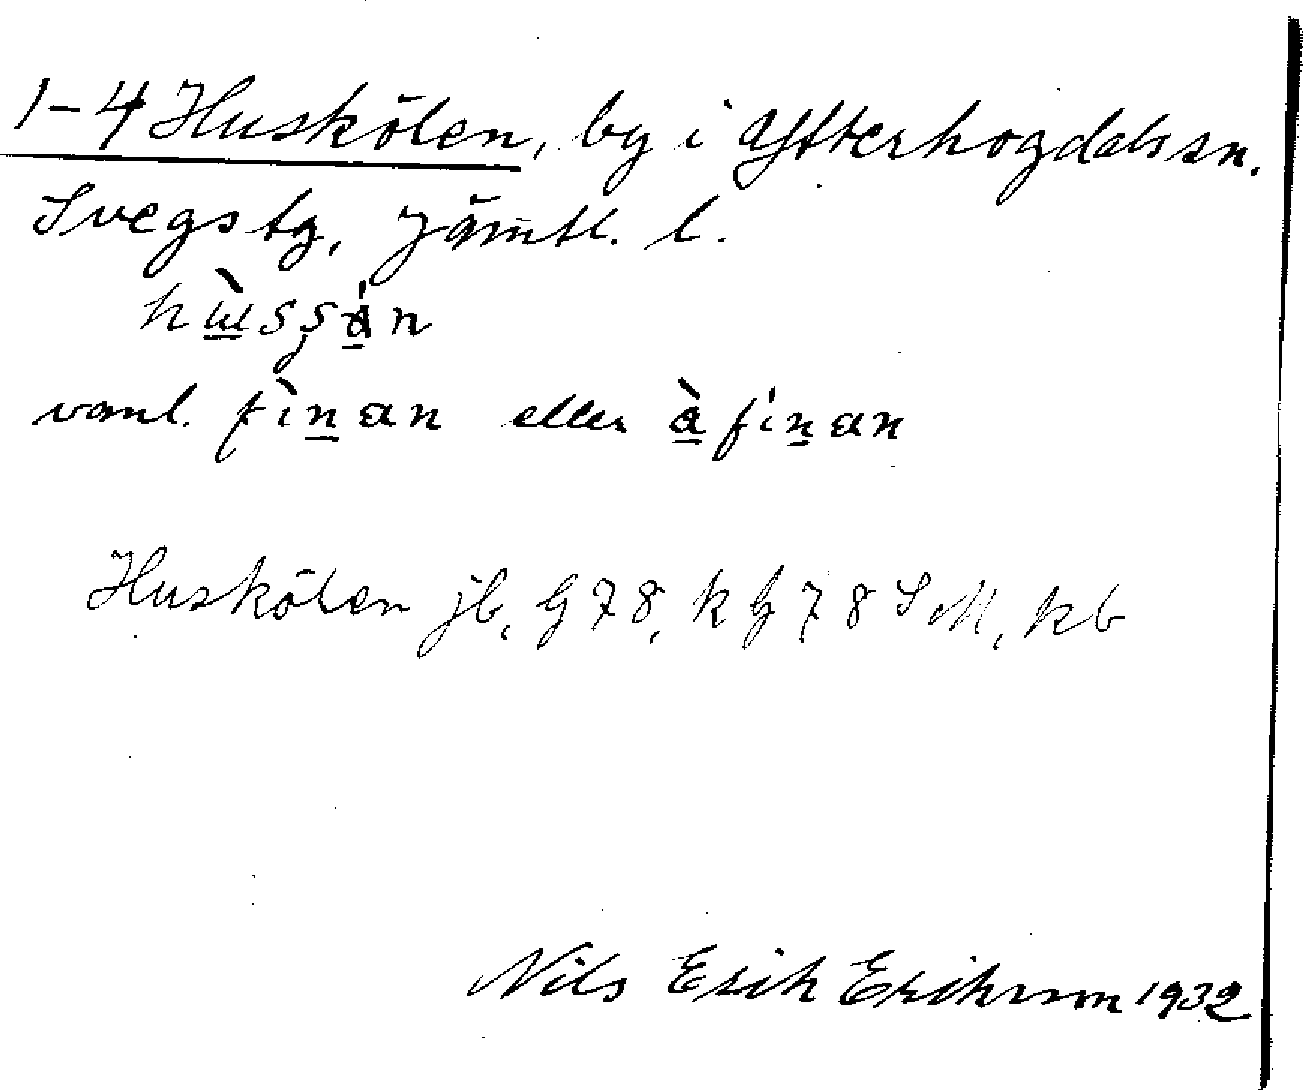 1-4 Huskölen, by i Ytterhogdals sn.
Svegs tg, Jämtl. l.
vanl. fìnan eller àfinan
Huskölen jb, G 78, k G 78 SM, kb
Nils Erik Erikson 1932